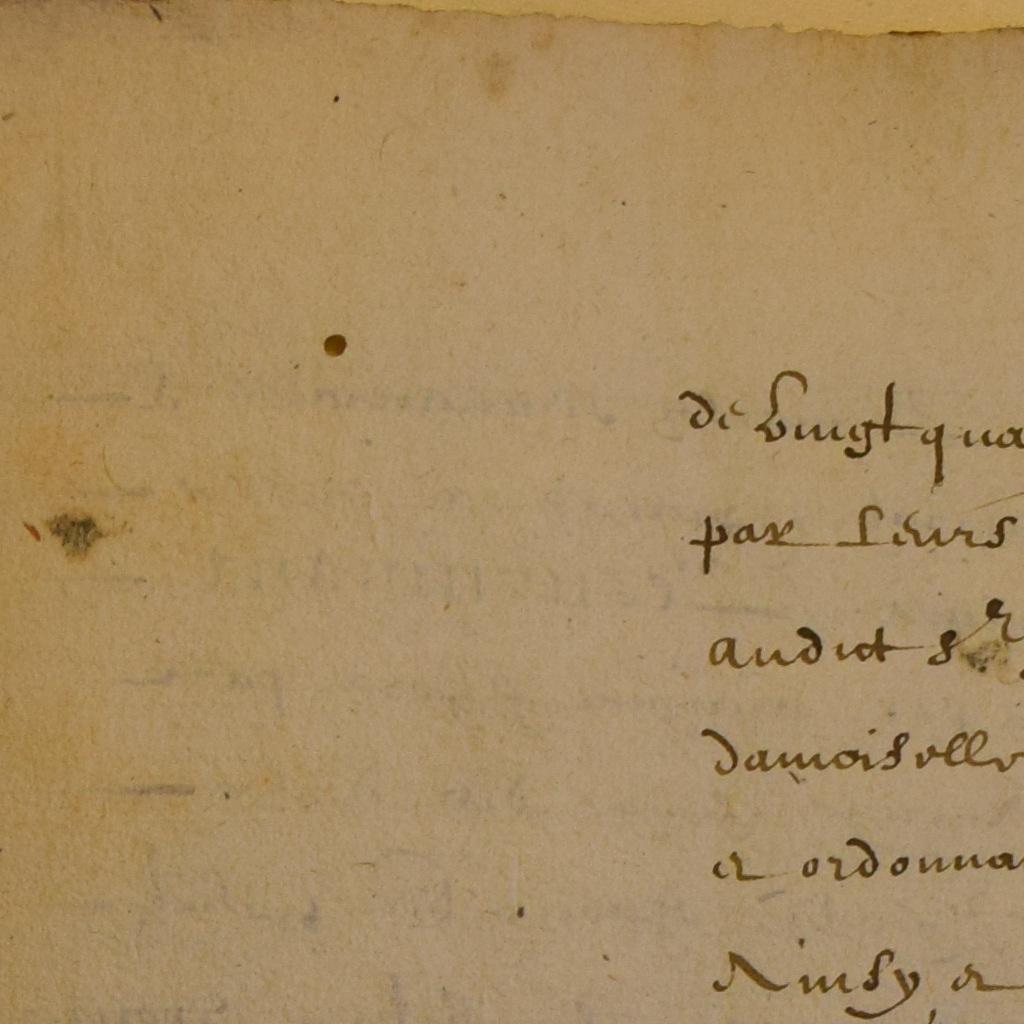 de vingt qua
par Leurs
audict sr
damoiselle
et ordonna
Ainsy et